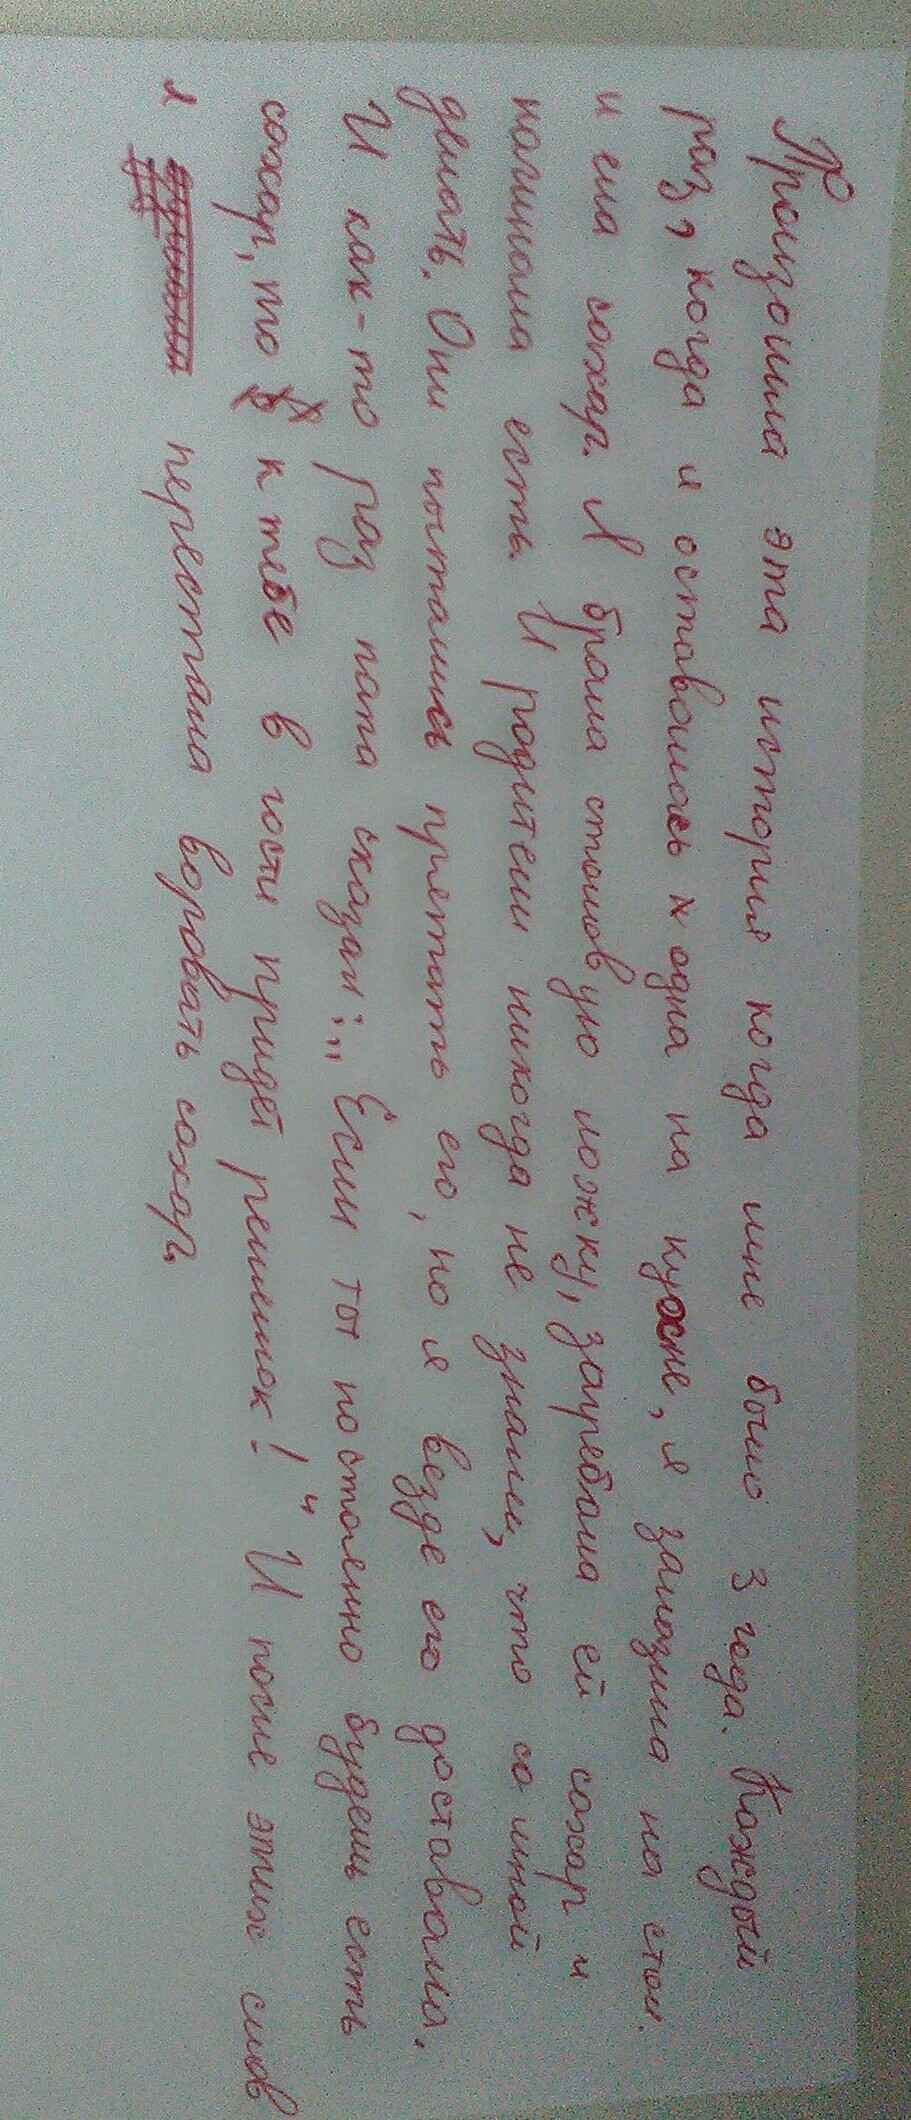 Произошла эта история когда мне было 3 года. Каждый
раз, когда я оставалась одна на кухне, я залазила на стол.
и ела сахар. Я брала столовую ложку, загребала ей сахар и
начинала есть. И родители никогда не знали, что со мной
делать. Они пытались прятать его, но я везде его доставала.
И как-то раз папа сказал: „Если ты постоянно будешь есть
сахар, то к тебе в гости придёт ремешок!“ И после этих слов
я перестала воровать сахар.